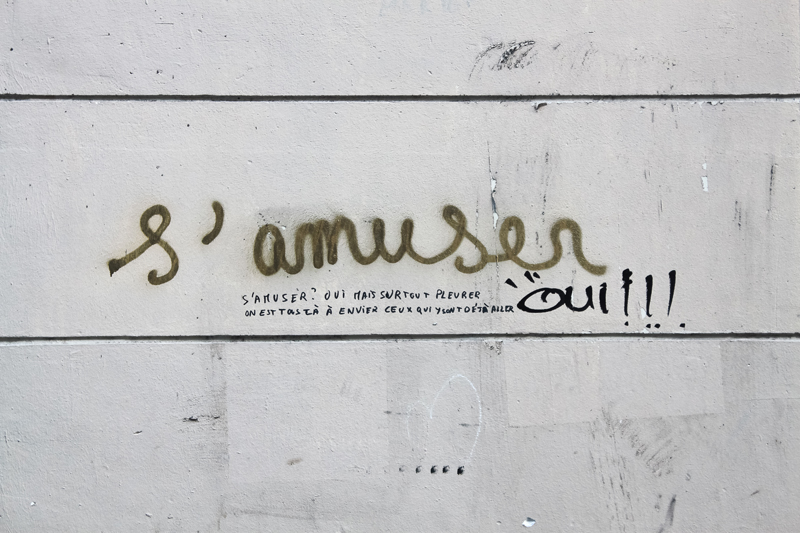 s'amuser
S'AMUSER? OUI MAIS SURTOUT PLEURER
ON EST TOUS LÀ À ENVIER CEUX QUI Y SONT DÉJÀ ALLER
OUI!!!